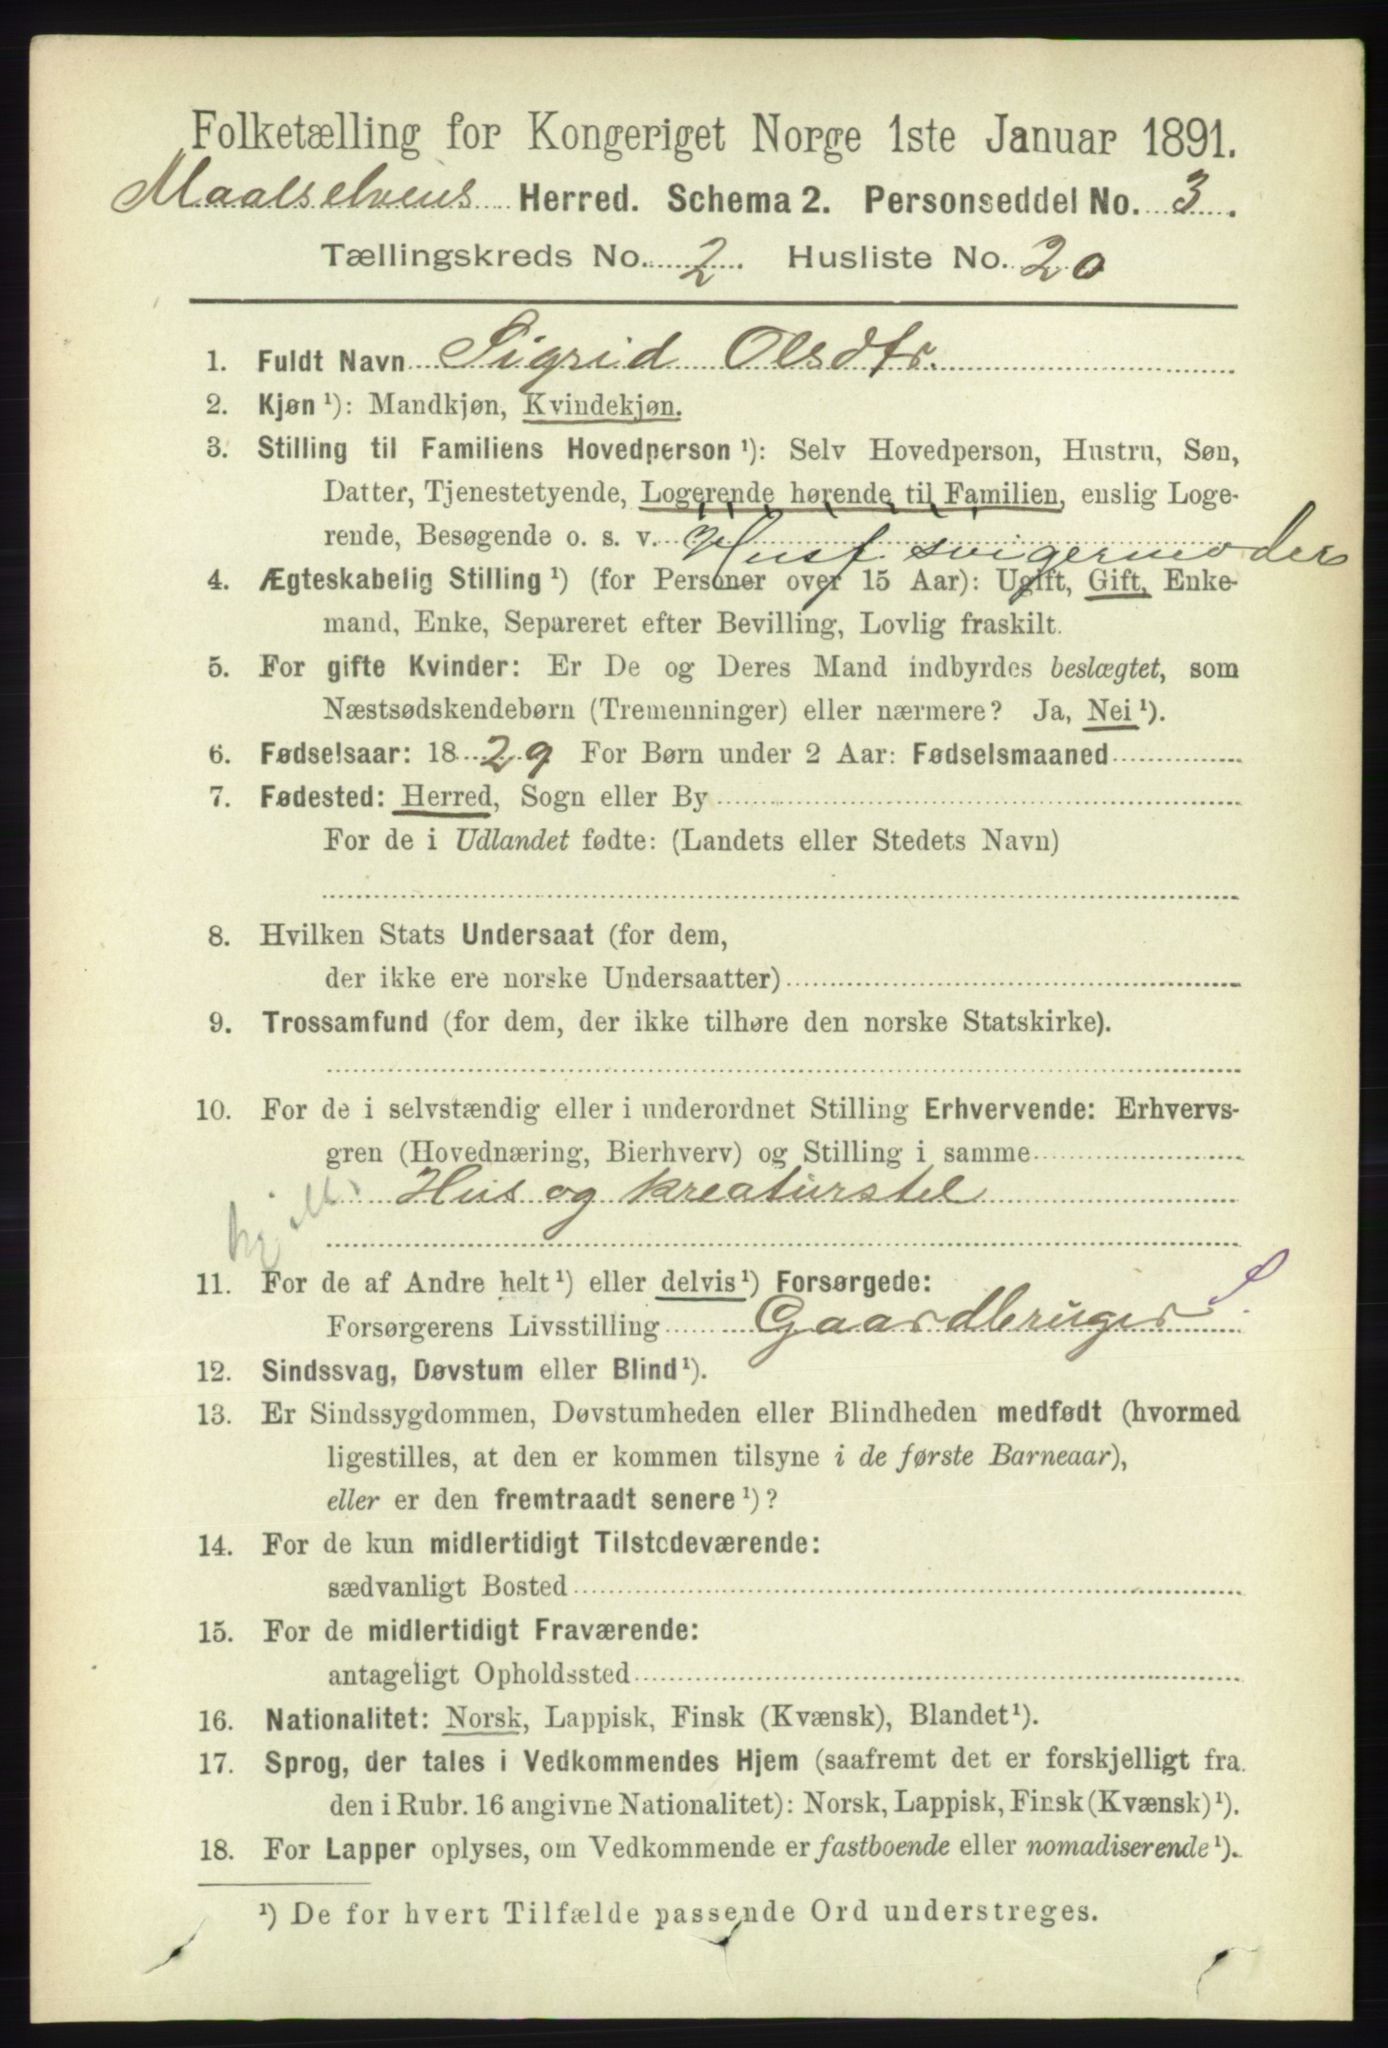 Folketælling for Kongeriget Norge 1ste Januar 1891.
Maalselvens Herred. Schema 2. Personseddel No. 3.
Tællingskreds No. 2. Husliste No. 20
1. Fuldt Navn Sigrid Olsdtr.
2. Kjøn ¹): Mandkjøn, Kvindekjøn.
3. Stilling til Familiens Hovedperson ¹): Selv Hovedperson, Hustru, Søn,
Datter, Tjenestetyende, Logerende hørende til Familien, enslig Loge-
rende, Besøgende o. s. v. Husf. svigermoder
4. Ægteskabelig Stilling ¹) (for Personer over 15 Aar): Ugift, Gift, Enke-
mand, Enke, Separeret efter Bevilling, Lovlig fraskilt.
5. For gifte Kvinder: Er De og Deres Mand indbyrdes beslægtet, som
Næstsødskendebørn (Tremenninger) eller nærmere? Ja, Nei ¹).
6. Fødselsaar: 1829 For Børn under 2 Aar: Fødselsmaaned
7. Fødested: Herred, Sogn eller By
For de i Udlandet fødte: (Landets eller Stedets Navn)
8. Hvilken Stats Undersaat (for dem,
der ikke ere norske Undersaatter)
9. Trossamfund (for dem, der ikke tilhøre den norske Statskirke).
10. For de i selvstændig eller i underordnet Stilling Erhvervende: Erhvervs-
gren (Hovednæring, Bierhverv) og Stilling i samme
Hus og kreaturstel
11. For de af Andre helt ¹) eller delvis ¹) Forsørgede:
Forsørgerens Livsstilling Gaardbruger
12. Sindssvag, Døvstum eller Blind ¹).
13. Er Sindssygdommen, Døvstumheden eller Blindheden medfødt (hvormed
ligestilles, at den er kommen tilsyne i de første Barneaar),
eller er den fremtraadt senere ¹)?
14. For de kun midlertidigt Tilstedeværende:
sædvanligt Bosted
15. For de midlertidigt Fraværende:
antageligt Opholdssted
16. Nationalitet: Norsk, Lappisk, Finsk (Kvænsk), Blandet ¹).
17. Sprog, der tales i Vedkommendes Hjem (saafremt det er forskjelligt fra
den i Rubr. 16 angivne Nationalitet): Norsk, Lappisk, Finsk (Kvænsk) ¹).
18. For Lapper oplyses, om Vedkommende er fastboende eller nomadiserende ¹).
¹) De for hvert Tilfælde passende Ord understreges.